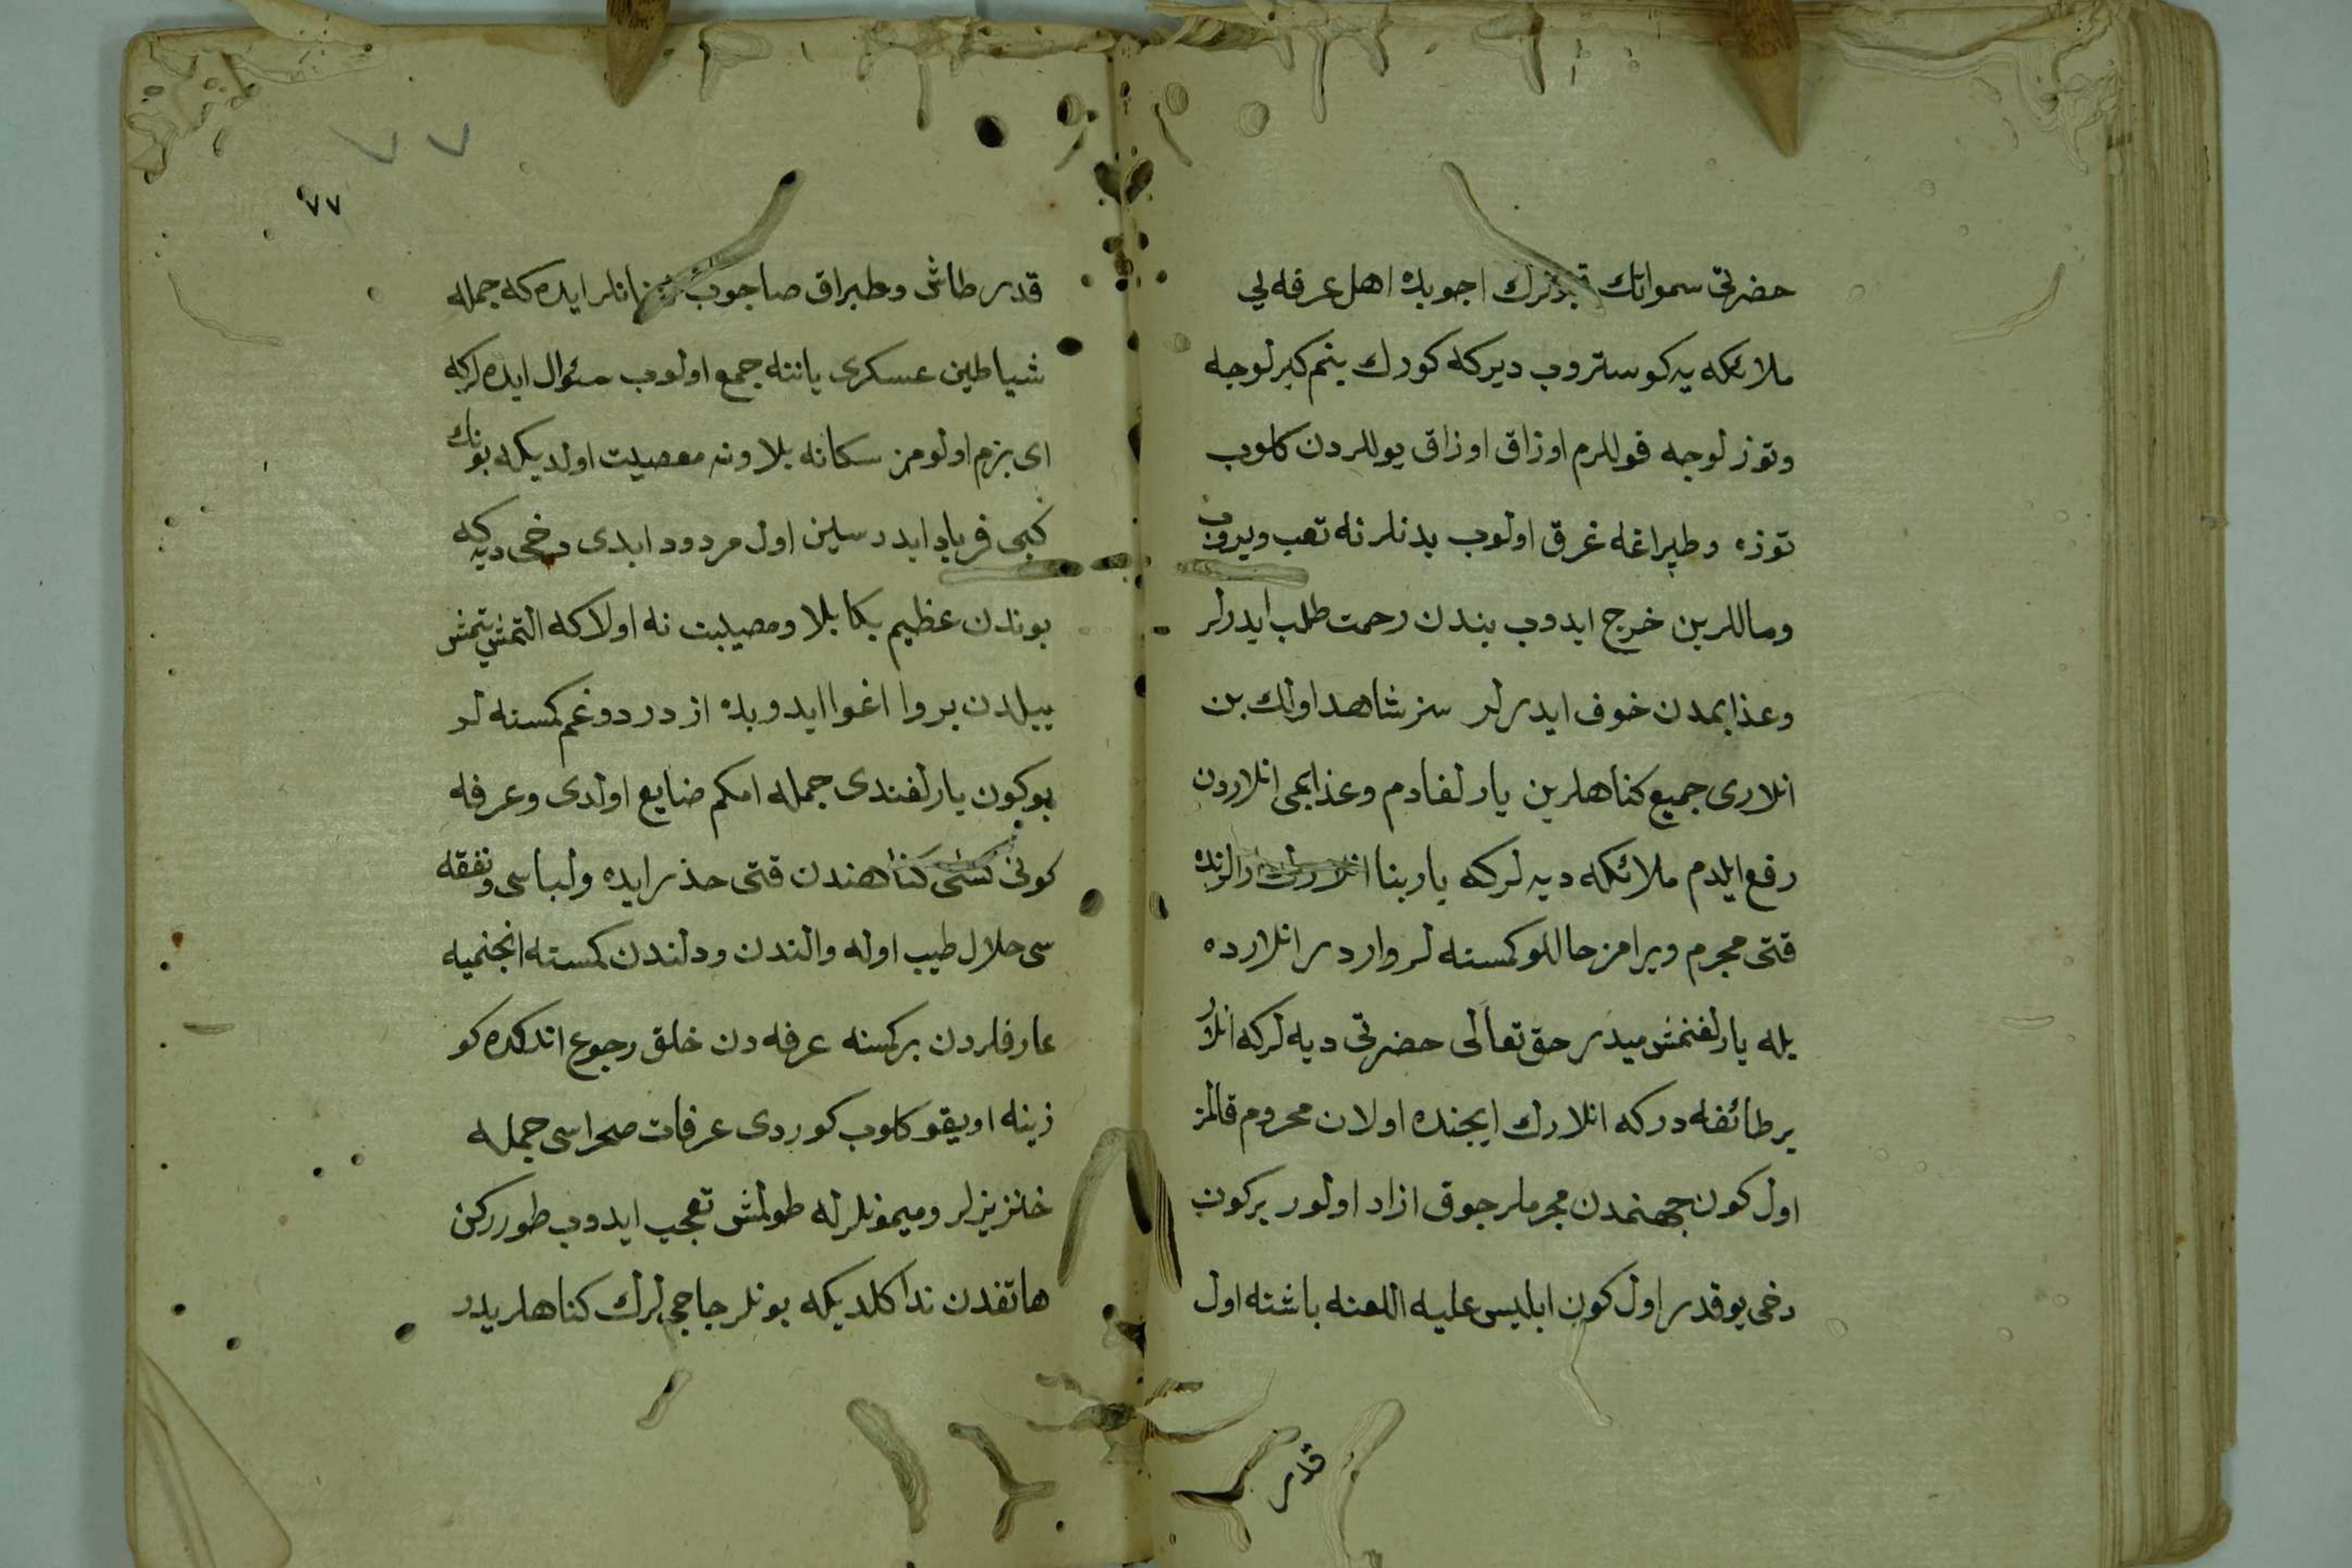 حضرتی سمواتك قپولرك اجوبده اهل عرفه یی
ملائکه یه کوستروب دیرکه کورك بنم کبرلوجه
وتوزلوجه قوللرم اوزاق اوزاق یوللردن کلوب
توزه وطپراغه غرق اولوب بدنلرنه تعب ویروب
ومالّلرین خرج ایدوب بندن رحمت طلب ایدرلر
وعذابمدن خوف ایدرلر سز شاهد اولك بن
انلاری جمیع کناهلرین یارلغادم وعذابمی انلاردن
رفع ایلدم ملائکه دیه لرکه یا ربنا
قتی مجرم ویرامز حاللو کمسنه لر واردر انلارده
بله یارلغنمش میدر حق تعالی حضرتی دیه لرکه انلار
بر طائفه درکه انلارك ایجنده اولان محروم قالمز
اول کون جهنمدن مجرملر جوق ازاد اولور بر کون
دخی یوقدر اول کون ابلیس علیه اللعنه باشنه اول
قدر
٧٧
٧٧
قدر طاش وطپراق صاجوب فغانلر ایده که جمله
شیاطین عسکری یاننه جمع اولوب سؤال ایده لرکه
ای بزم اولومز سکا نه بلا ونه معصیت اولدیکه بونك
کبی فریاد ایدرسین اول مردود ابدی دخی دیه که
بوندن عظیم بکا بلا ومصیبت نه اولا که التمش یتمش
ییلدن برو اغوا ایدوبده ازدردوغم کمسنه لر
بو کون یارلغندی جمله امکم ضایع اولدی وعرفه
کونی کشی کناهندن قتی حذر ایده ولباسی ونفقه
سی حلال طیب اوله والندن ودلندن کمسنه انجنمیه
عارفلردن بر کسنه عرفه دن خلق رجوع اتدکده کو
زینه اویقو کلوب کوردی عرفات صحراسی جمله
خنزیزلر ومیمونلرله طولمش تعجب ایدوب طوررکن
هاتفدن ندا کلدیکه بونلر حاجیلرك کناهلریدر